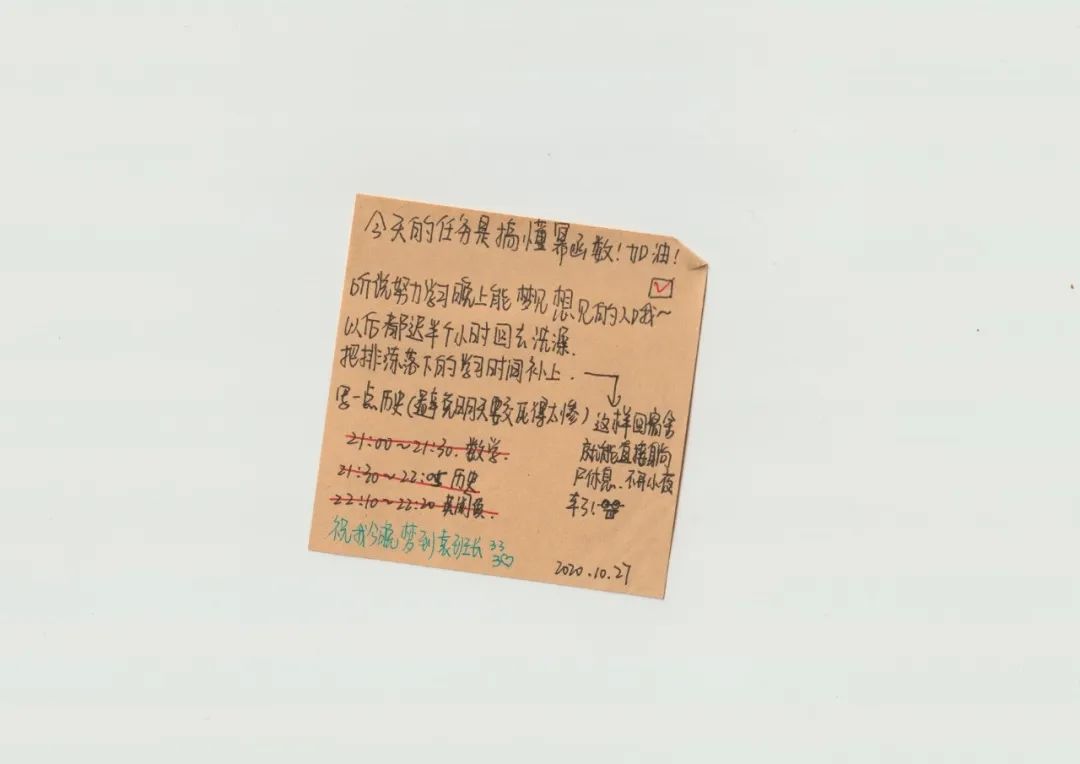 今天的任务是搞懂幂函数！加油！
听说努力学习晚上能梦见想见的人哦～
以后都迟半个小时回去洗澡.
把排练落下的学习时间补上.
思一点历史(避免明天要交死得太惨)
这样回宿舍
就能直接
休息..不开小夜
车了
21:00～21:30.数学.
21:30～22:05历史
22:10～22:20
祝我今晚梦到袁班长
2020.10.27